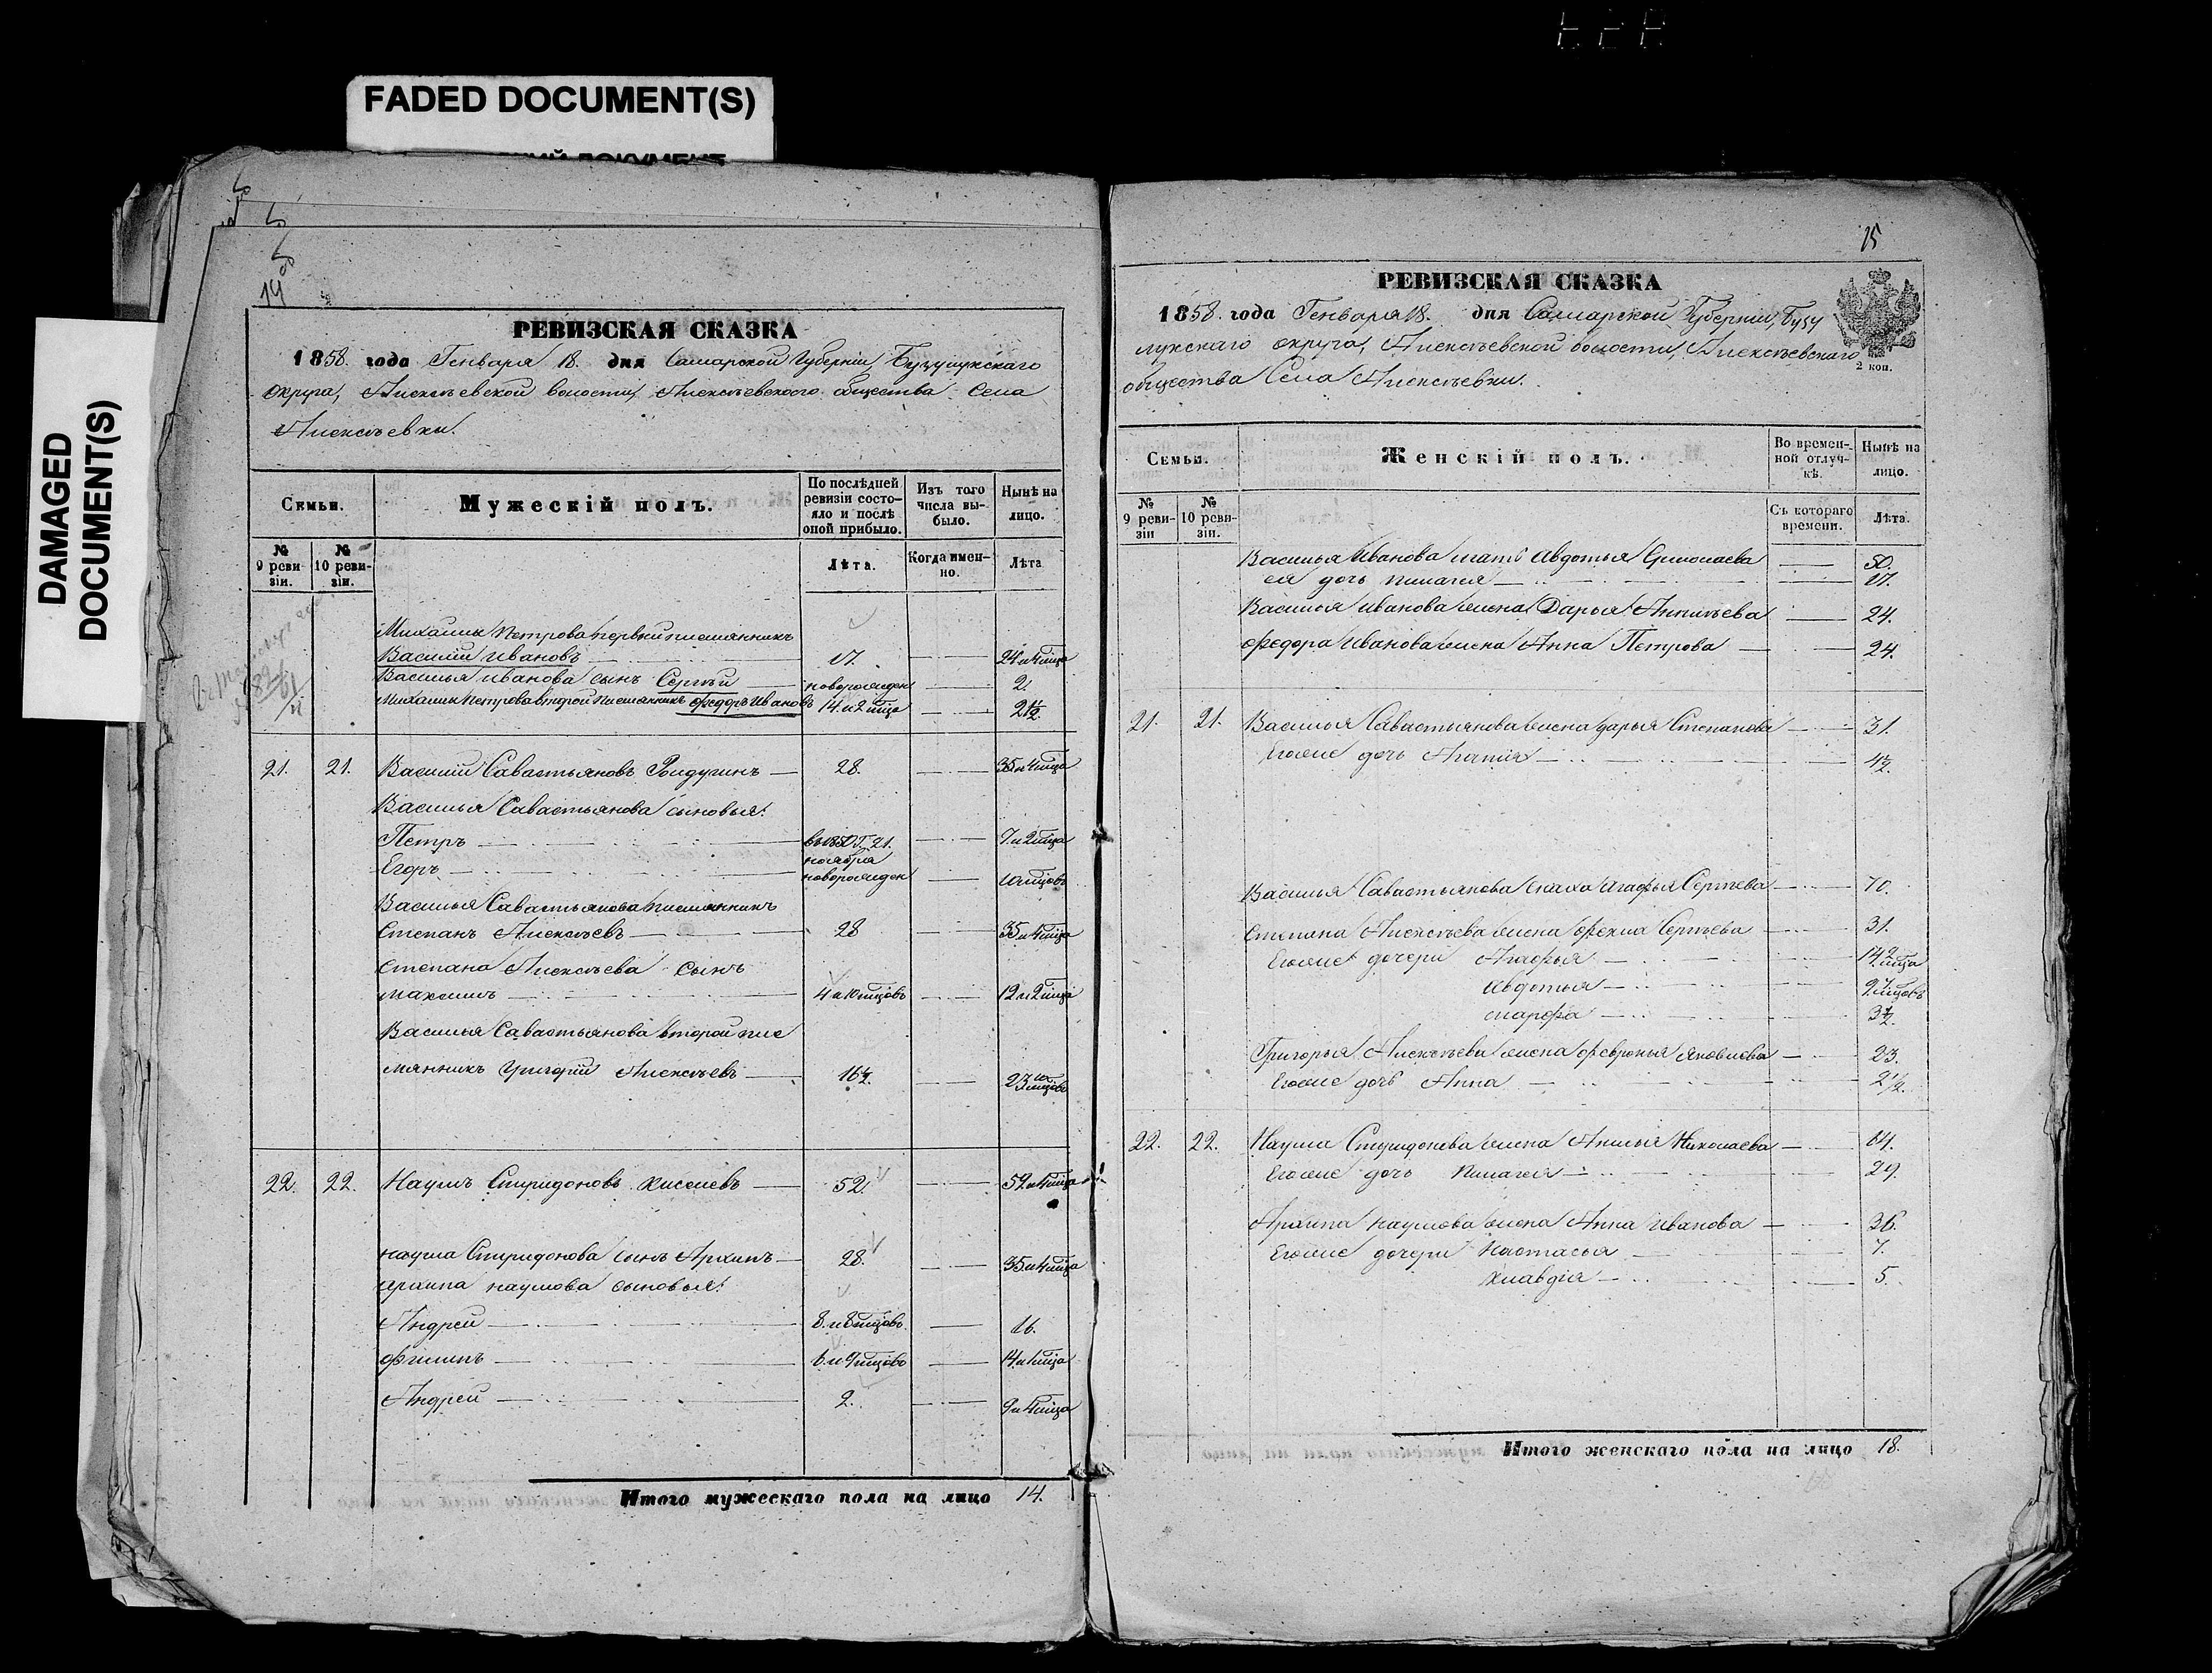 FADED DOCUMENT(S)
DAMAGED
DOCUMENT(S)
14
РЕВИЗСКАЯ СКАЗКА
1858. года Генваря 18. дня Самарской Губерніи, Бузулукскаго
округа, Алексѣевской волости, Алексѣевскаго общества Села
Алексѣевки.
Семьи.
Мужескій полъ.
По послѣдней ревизіи состояло и послѣ оной прибыло.
Изъ того числа выбыло.
Нынѣ на лицо.
№ 9 ревизіи.
№ 10 ревизіи.
Лѣта.
Когда именно.
Лѣта
Михаилы Петрова первой племянникъ
Василій Ивановъ 17. 24 и 4 мѣца
Василья Иванова сынъ Сергѣй новорожден 2.
Михаилы Петрова второй племянникъ Федоръ Ивановъ 14 и 2 мѣца 21½
21. 21. Василій Савастьяновъ 28. 35 и 4 мѣца
Василья Савастьянова сыновья:
Петръ въ 1850 Г. 21. ноября 7 и 2 мѣца
Егоръ новорожден 10 мѣцовъ
Василья Савастьянова племянникъ
Степанъ Алексѣевъ 28 35 и 4 мѣца
Степана Алексѣева сынъ
Максимъ 4 и 10 мѣцовъ 12 и 2 мѣца
Василья Савастьянова второй пле
мянникъ Григорій Алексѣевъ 16½. 23 и 10 мѣцовъ
22. 22. Наумъ Спиридоновъ Киселевъ 52. 59 и 4 мѣца
Наума Спиридонова сынъ Архипъ 28. 35 и 4 мѣца
Архипа Наумова сыновья:
Андрей 8. и 8 мѣцовъ. 16.
Филипъ 6. и 9 мѣцовъ 14 и 1 мѣца
Андрей 2. 9 и 4 мѣца
Итого мужескаго пола на лицо 14.
15
РЕВИЗСКАЯ СКАЗКА
1858. года Генваря 18. дня Самарской Губерніи, Бузу
лукскаго округа, Алексѣевской волости, Алексѣевскаго
2 коп.
общества Села Алексѣевки.
Семьи.
Женскій полъ.
Во временной отлучкѣ.
Нынѣ на лицо.
№ 9 ревизіи
№ 10 ревизіи.
Съ котораго времени.
Лѣта.
Василья Иванова мать Авдотья Ермолаева 50.
ея дочь Пилагея 17.
Василья Иванова жена Дарья 24.
Федора Иванова жена Анна Петрова 24.
21. 21. Василья Савастьянова жена Дарья Степанова 31.
Егоже дочь 4½.
Василья Савастьянова сноха Агафья Сергѣева 70.
Степана Алексѣева жена Фекла Сергѣева 31.
Егоже дочери Агафья 14 2 мѣца
Авдотья 9 7 мѣцовъ
Марфа 3½.
Григорья Алексѣева жена Февронья Яковлева 23.
Егоже дочь Анна 2½.
22. 22. Наума Спиридонова жена Николаева 64.
Егоже дочь Пилагея 29.
Архипа Наумова жена Анна Иванова 36.
Егоже дочери Настасья 7.
Клавдія 5.
Итого женскаго пола на лицо 18.